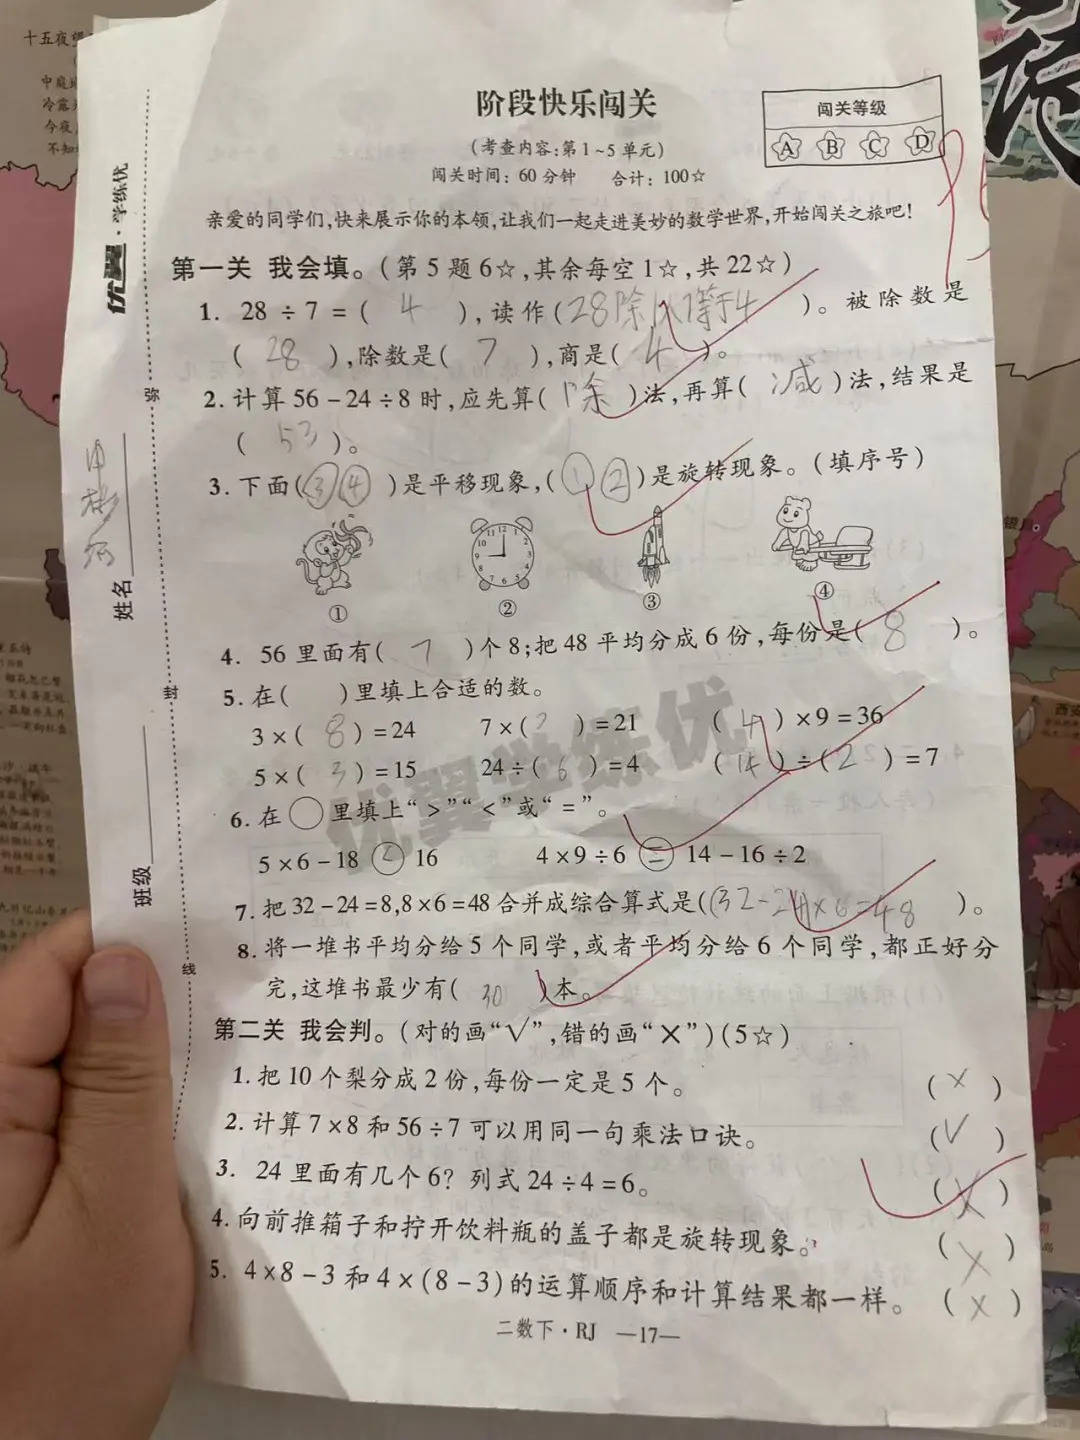 阶段快乐闯关
(考查内容:第1~5单元)
闯关时间:60分钟 合计:100☆
闯关等级
A B C D
亲爱的同学们,快来展示你的本领,让我们一起走进美妙的数学世界,开始闯关之旅吧!
第一关 我会填。(第5题6☆,其余每空1☆,共22☆)
1. 28÷7=( 4 ),读作(28除以7等于4 )。被除数是
( 28 ),除数是( 7 ),商是( 4 )。
2. 计算56-24÷8时,应先算( 除 )法,再算( 减 )法,结果是
( 53 )。
3. 下面(③④)是平移现象,(①②)是旋转现象。(填序号)
① ② ③ ④
4. 56里面有( 7 )个8;把48平均分成6份,每份是( 8 )。
5. 在( )里填上合适的数。
3×( 8 )=24 7×( )=21 ( 4 )×9=36
5×( 3 )=15 24÷( 6 )=4 ( 14 )÷( 2 )=7
6. 在○里填上“>”“<”或“=”。
5×6-18 < 16 4×9÷6 = 14-16÷2
7. 把32-24=8,8×6=48合并成综合算式是((32-24)×6=48 )。
8. 将一堆书平均分给5个同学,或者平均分给6个同学,都正好分
完,这堆书最少有( 30 )本。
第二关 我会判。(对的画“√”,错的画“×”)(5☆)
1. 把10个梨分成2份,每份一定是5个。 ( × )
2. 计算7×8和56÷7可以用同一句乘法口诀。 ( √ )
3. 24里面有几个6?列式24÷4=6。 ( × )
4. 向前推箱子和拧开饮料瓶的盖子都是旋转现象。 ( × )
5. 4×8-3和4×(8-3)的运算顺序和计算结果都一样。 ( × )
二数下·RJ —17—
优翼·学练优
弥
封
线
姓名
班级
优翼学练优
十五夜望